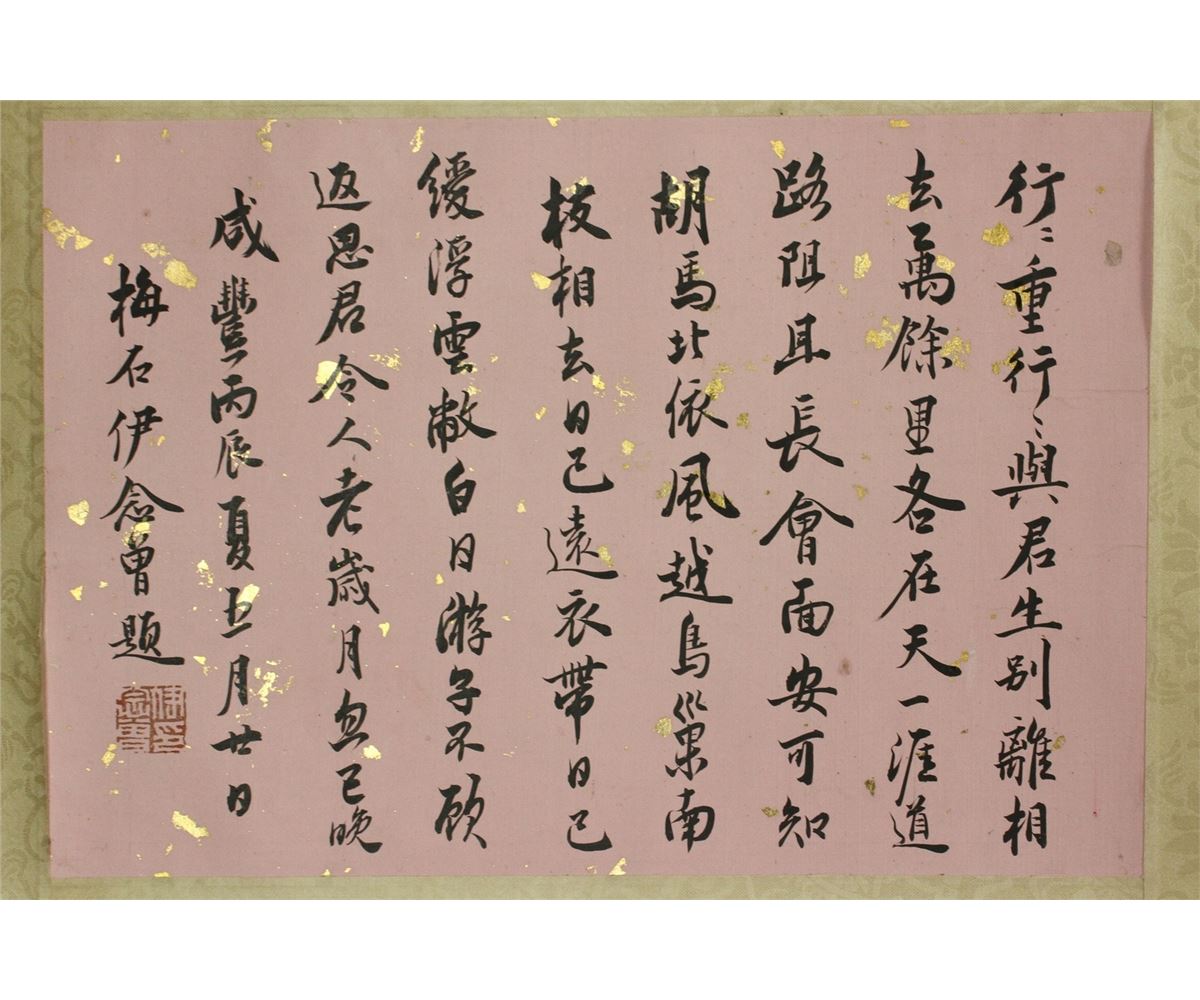 行〻重行〻與君生別離相
去萬餘里各在天一涯道
路阻且長會面安可知
胡馬北依風越鳥巢南
枝相去日已遠衣帶日已
緩浮雲蔽白日游子不顧
返思君令人老歲月忽已晚
咸豐丙辰夏五月廿日
梅石伊念曾題
伊念曾印